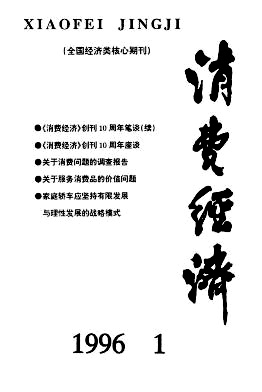 XIAOFEI JINGJI
(全国经济类核心期刊)
消费经济
●《消费经济》创刊10周年笔谈(续)
●《消费经济》创刊10周年座谈
●关于消费问题的调查报告
●关于服务消费品的价值问题
●家庭轿车应坚持有限发展
与理性发展的战略模式
1996 1